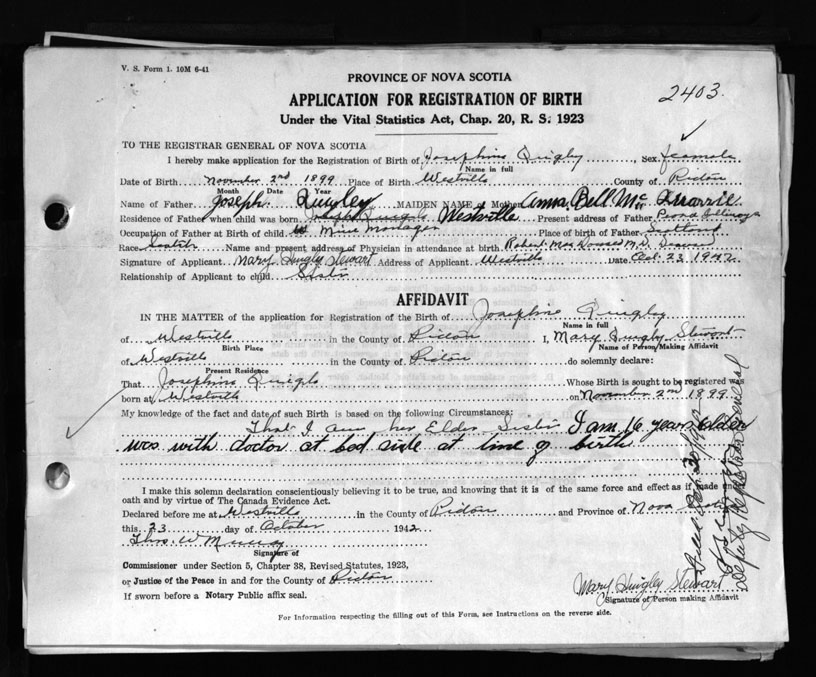 V. S. Form 1. 10M 6-41
PROVINCE OF NOVA SCOTIA
2403.
APPLICATION FOR REGISTRATION OF BIRTH
Under the Vital Statistics Act, Chap. 20, R. S. 1923
TO THE REGISTRAR GENERAL OF NOVA SCOTIA
I hereby make application for the Registration of Birth of Josephine Quigley, Sex female
Name in full
Date of Birth November 2nd 1899 Place of Birth Westville County of Pictou
Month Date Year
Name of Father Joseph Quigley MAIDEN NAME of Mother Anna Bell Mc Quarrie
Residence of Father when child was born Westville Present address of Father
Occupation of Father at Birth of child Mine Manager Place of birth of Father Scotland
Race Scotch Name and present address of Physician in attendance at birth Robert M.D. Deceased
Signature of Applicant Mary Quigley Stewart Address of Applicant Westville Date Oct. 23 1942
Relationship of Applicant to child Sister
AFFIDAVIT
IN THE MATTER of the application for Registration of the Birth of Josephine Quigley
Name in full
of Westville in the County of Pictou I, Mary Quigley Stewart
Birth Place Name of Person Making Affidavit
of Westville in the County of Pictou do solemnly declare:
Present Residence
That Josephine Quigley Whose Birth is sought to be registered was
born at Westville on November 2nd 1899
My knowledge of the fact and date of such Birth is based on the following Circumstances:
That I am her Elder Sister I am 16 years older
was with doctor at bed side at time of birth
I make this solemn declaration conscientiously believing it to be true, and knowing that it is of the same force and effect as if made under
oath and by virtue of The Canada Evidence Act.
Declared before me at Westville in the County of Pictou and Province of Nova Scotia
this 23 day of October 1942
Thos. W Murray
Signature of
Commissioner under Section 5, Chapter 38, Revised Statutes, 1923,
or Justice of the Peace in and for the County of Pictou
Mary Quigley Stewart
Signature of Person making Affidavit
If sworn before a Notary Public affix seal.
For Information respecting the filling out of this Form, see Instructions on the reverse side.
Deputy Registrar General